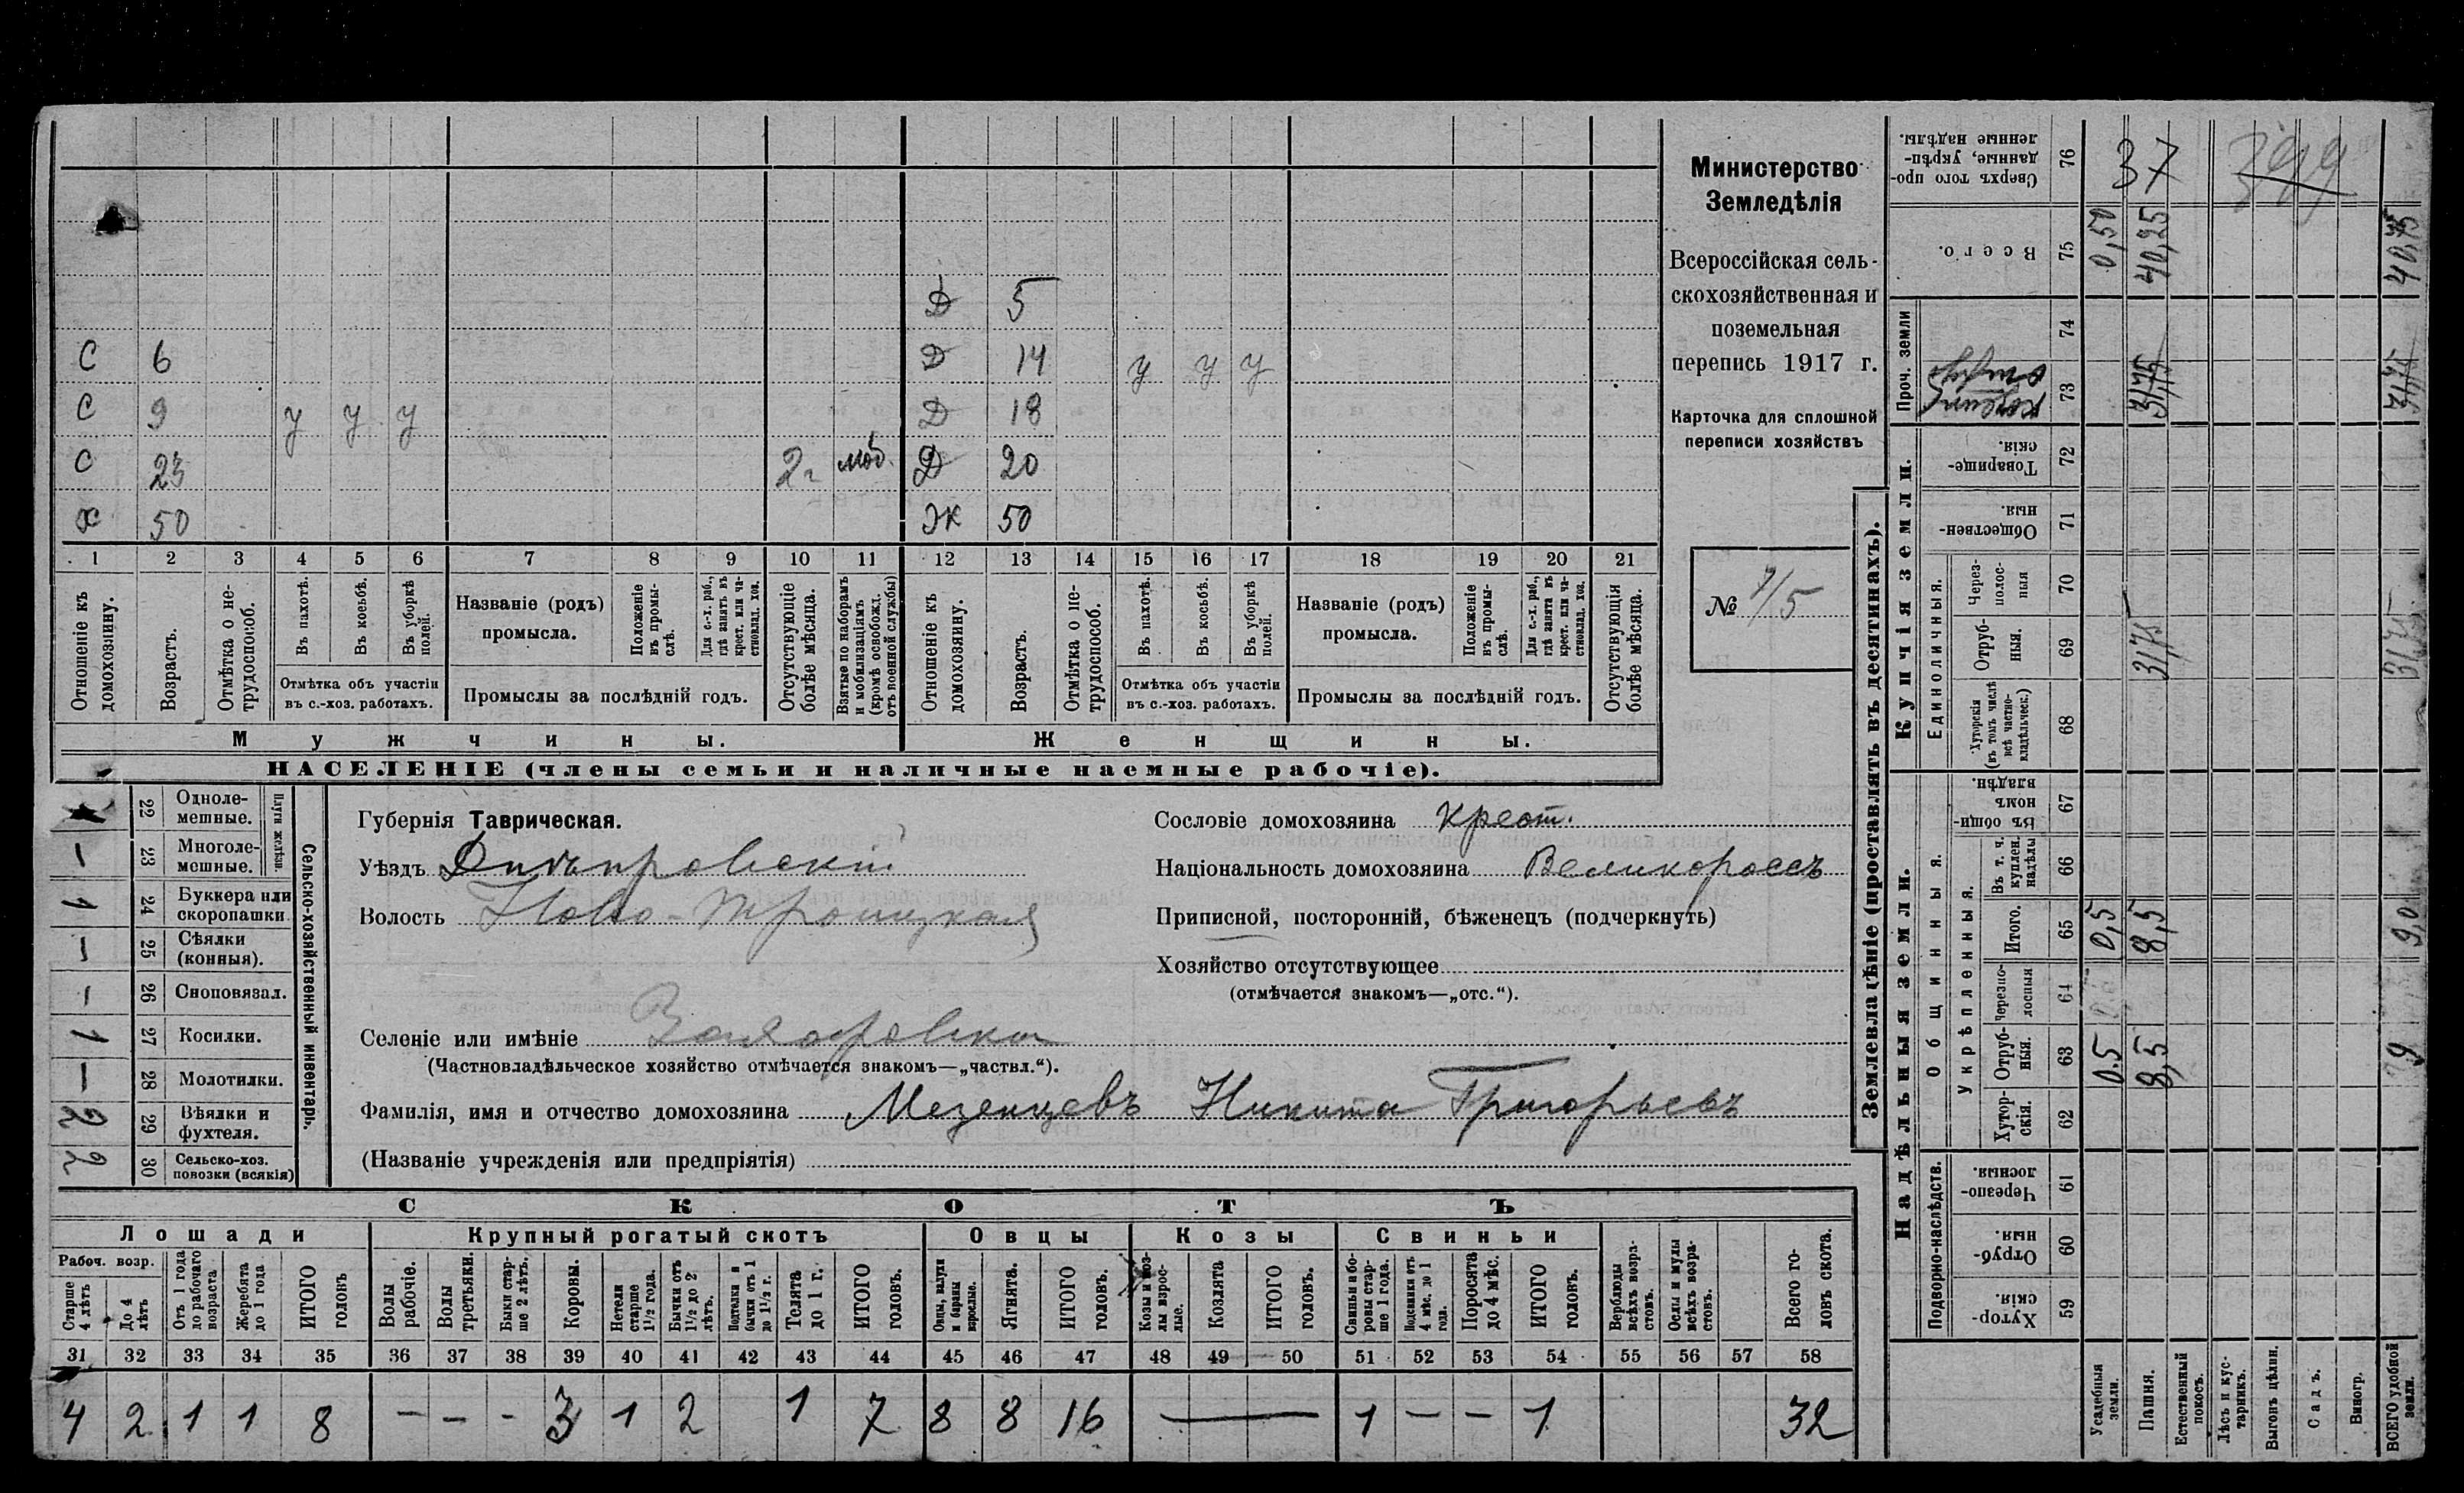 Министерство
Земледѣлія
Всероссійская сель-
скохозяйственная и
поземельная
перепись 1917 г.
Карточка для сплошной
переписи хозяйствъ
№ 7/5
Д 5
С 6 Д 14 у у у
С 9 у у у Д 18
С 23 2 г моб. Д 20
Х 50 Ж 50
1 2 3 4 5 6 7 8 9 10 11 12 13 14 15 16 17 18 19 20 21
Отношеніе къ домохозяину.
Возрастъ.
Отмѣтка о не-трудоспособ.
Въ пахотѣ.
Въ косьбѣ.
Въ уборкѣ полей.
Отмѣтка объ участіи
въ с.-хоз. работахъ.
Названіе (родъ)
промысла.
Положеніе въ промы-слѣ.
Для с.-х. раб., гдѣ занятъ въ крест. или ча-стновлад. хоз.
Промыслы за послѣдній годъ.
Отсутствующіе болѣе мѣсяца.
Взятые по наборамъ и мобилизаціямъ (кромѣ освобожд. отъ военной службы)
Отношеніе къ домохозяину.
Возрастъ.
Отмѣтка о не-трудоспособ.
Въ пахотѣ.
Въ косьбѣ.
Въ уборкѣ полей.
Отмѣтка объ участіи
въ с.-хоз. работахъ.
Названіе (родъ)
промысла.
Положеніе въ промы-слѣ.
Для с.-х. раб., гдѣ занятъ въ крест. или ча-стновлад. хоз.
Промыслы за послѣдній годъ.
Отсутствующія болѣе мѣсяца.
Мужчины. Женщины.
НАСЕЛЕНІЕ (члены семьи и наличные наемные рабочіе).
Сельско-хозяйственный инвентарь.
Плуги желѣзн.
22 Одноле-мешные.
— 23 Многоле-мешные.
1 24 Буккера или скоропашки
— 25 Сѣялки (конныя).
— 26 Сноповязал.
1 27 Косилки.
— 28 Молотилки.
2 29 Вѣялки и фухтеля.
2 30 Сельско-хоз. повозки (всякія)
Губернія Таврическая.
Уѣздъ Днѣпровскій
Волость Ново-Троицкая
Селеніе или имѣніе
(Частновладѣльческое хозяйство отмѣчается знакомъ—„частвл.“).
Сословіе домохозяина крест.
Національность домохозяина Великороссъ
Приписной, посторонній, бѣженецъ (подчеркнуть)
Хозяйство отсутствующее
(отмѣчается знакомъ—„отс.“).
Фамилія, имя и отчество домохозяина Мезенцевъ Никита Григорьевъ
(Названіе учрежденія или предпріятія)
СКОТЪ
Лошади Крупный рогатый скотъ Овцы Козы Свиньи
Рабоч. возр.
Старше 4 лѣтъ
До 4 лѣтъ
Отъ 1 года до рабочаго возраста
Жеребята до 1 года
ИТОГО головъ
Волы рабочіе.
Волы третьяки.
Быки стар-ше 2 лѣтъ.
Коровы.
Нетели старше 1½ года.
Бычки отъ 1½ до 2 лѣтъ.
Подтелки и бычки отъ 1 до 1½ г.
Телята до 1 г.
ИТОГО головъ.
Овцы, валухи и бараны взрослые.
Ягнята.
ИТОГО головъ.
Козы и коз-лы взрос-лые.
Козлята
ИТОГО головъ.
Свиньи и бо-ровы стар-ше 1 года.
Подсвинки отъ 4 мѣс. до 1 года.
Поросята до 4 мѣс.
ИТОГО головъ.
Верблюды всѣхъ возра-стовъ.
Ослы и мулы всѣхъ возра-стовъ.
Всего го-ловъ скота.
31 32 33 34 35 36 37 38 39 40 41 42 43 44 45 46 47 48 49 50 51 52 53 54 55 56 57 58
4 2 1 1 8 — — — 3 1 2 1 7 8 8 16 — 1 — — 1 32
Землевладѣніе (проставлять въ десятинахъ).
Сверхъ того про-данные, укрѣп-ленные надѣлы. 76 37 399
Всего. 75 0,50 40,25 40,75
Проч. земли
74
73 31,75 31,75
Купчія земли.
Товарище-скія. 72
Обществен-ныя. 71
Единоличныя.
Через-полос-ныя 70
Отруб-ныя. 69 31,75 31,75
Хуторскія (въ томъ числѣ всѣ частно-владѣльческ.) 68
Надѣльныя земли.
Общинныя.
Въ общи-номъ владѣн. 67
Укрѣпленныя.
Въ т. ч. куплен. надѣлы 66
Итого. 65 0,5 8,5 9,0
Черезпо-лосныя 64
Отруб-ныя. 63 0.5 8,5 9
Хутор-скія. 62
Подворно-наслѣдств.
Черезпо-лосныя. 61
Отруб-ныя. 60
Хутор-скія. 59
Усадебныя земли.
Пашня.
Естественный покосъ.
Лѣсъ и кус-тарникъ.
Выгонъ цѣлин.
Садъ.
Виногр.
ВСЕГО удобной земли.